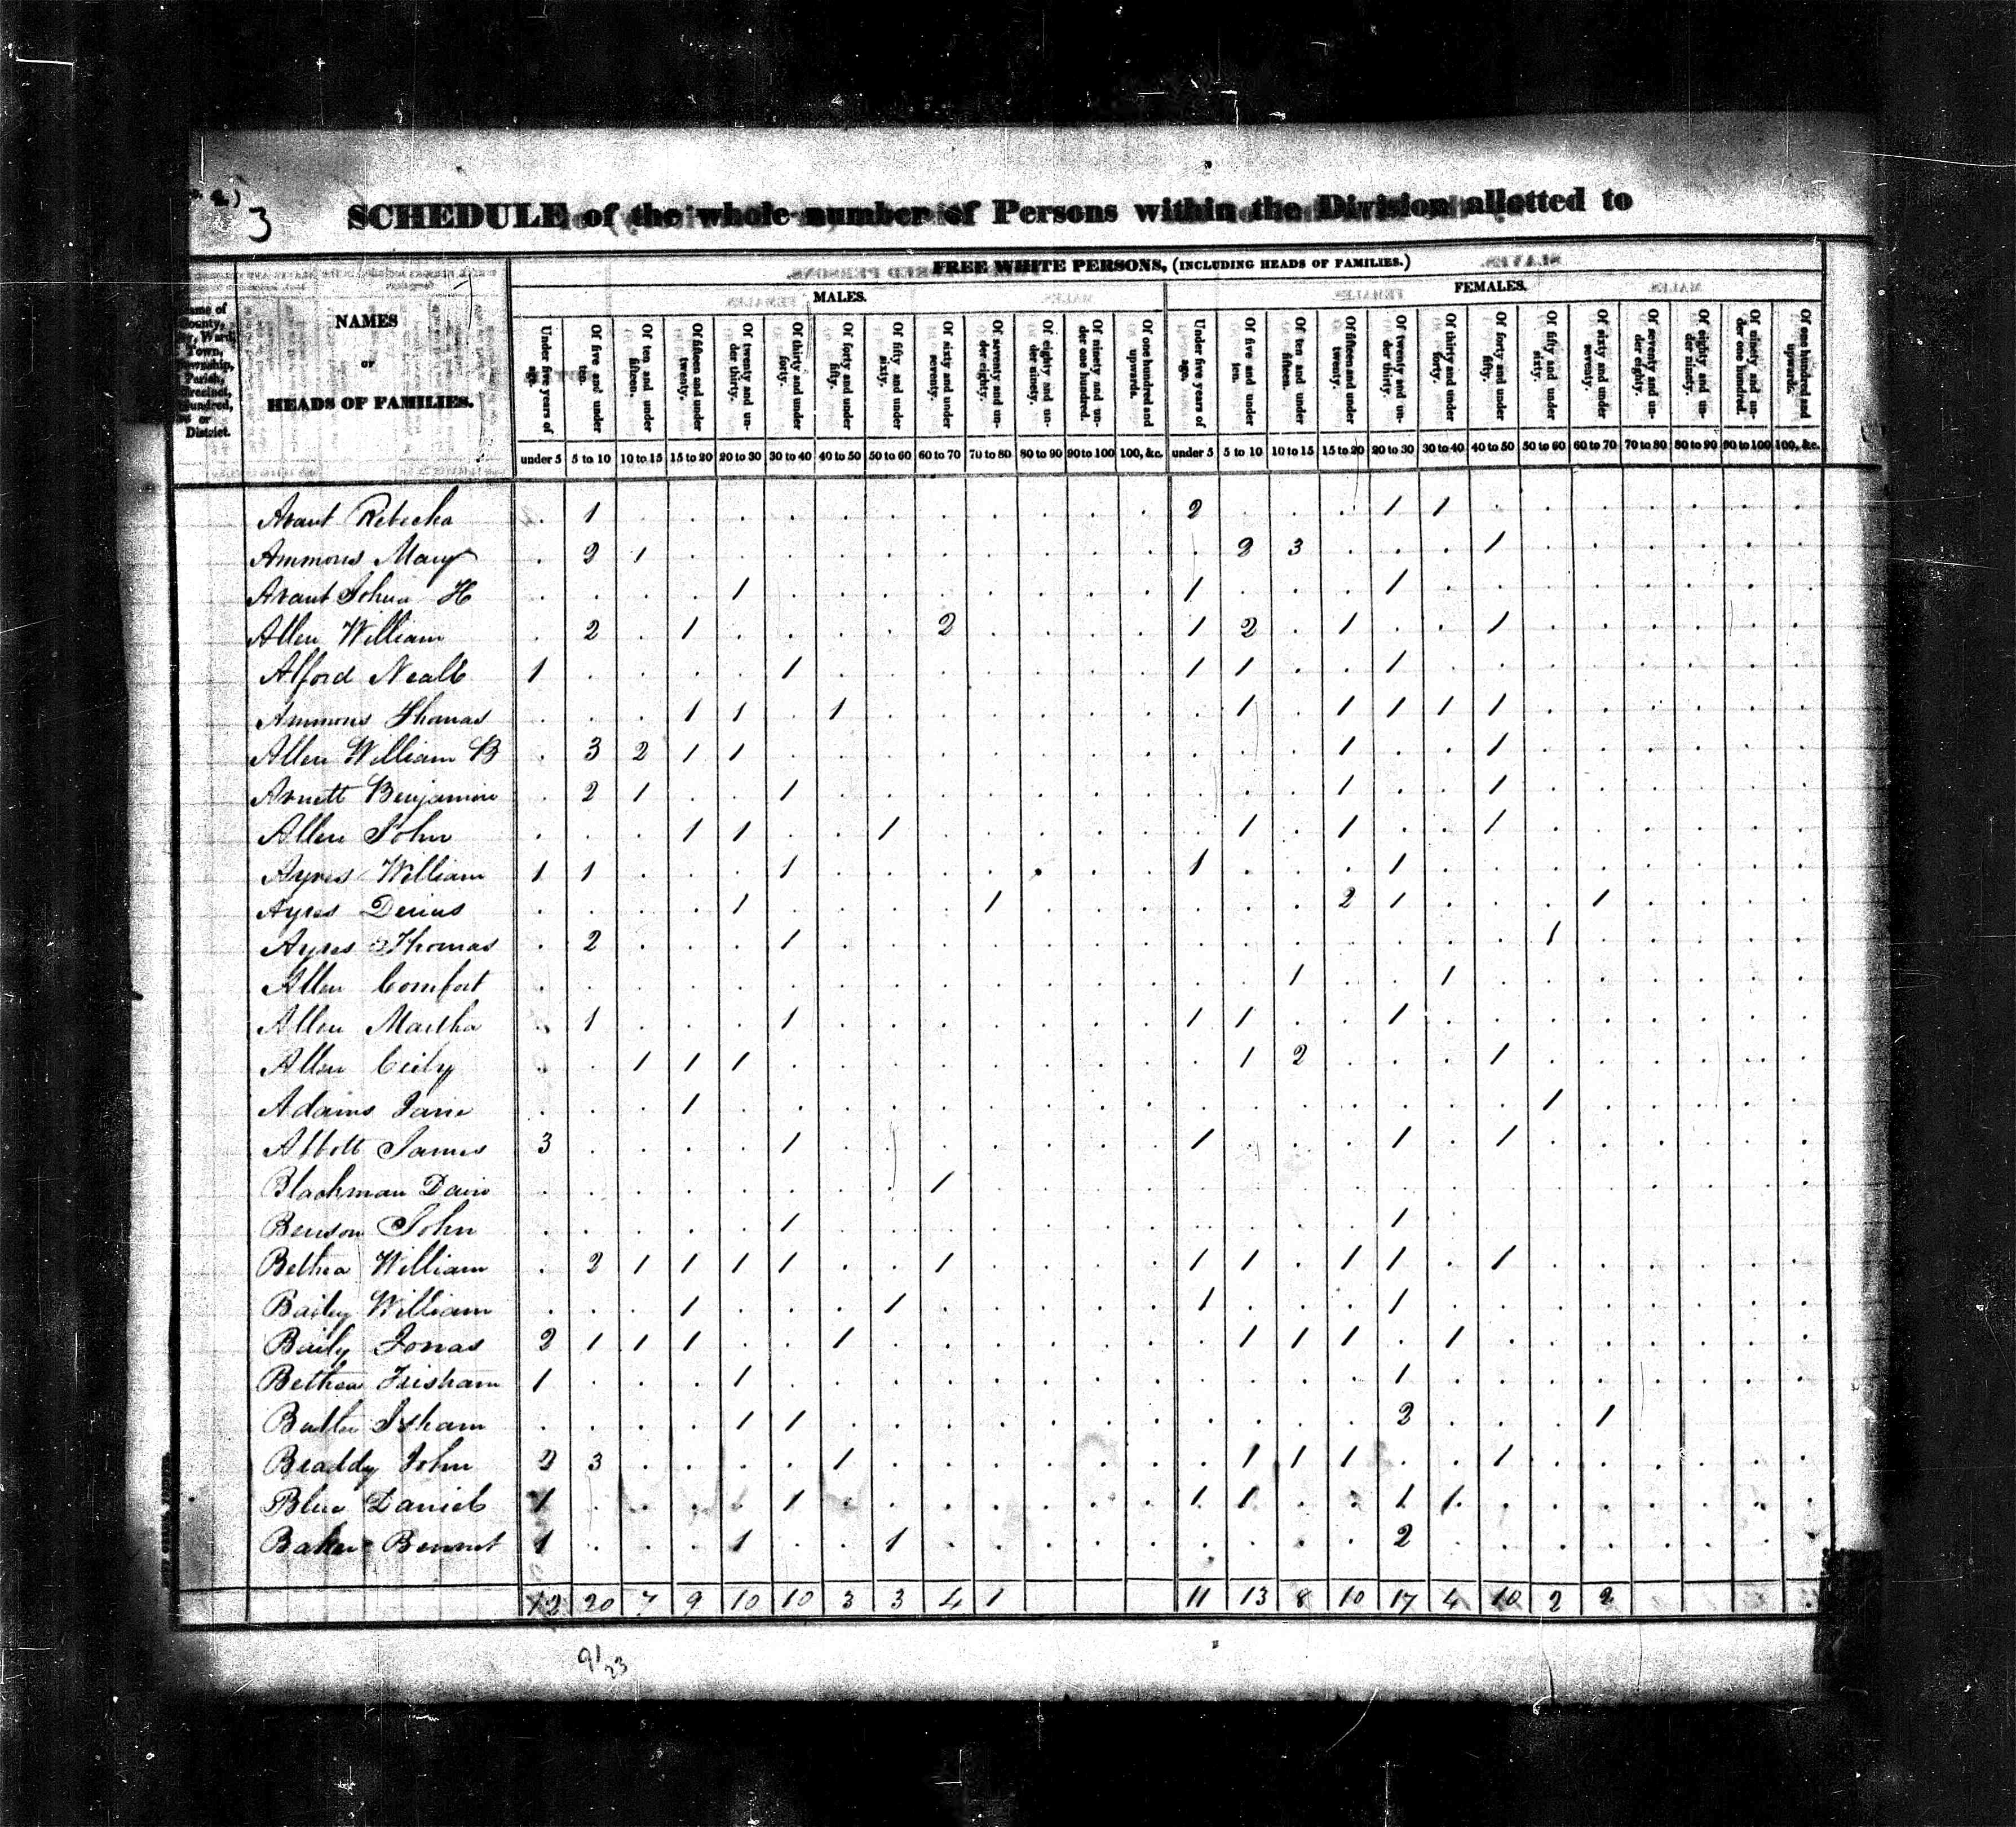 3
SCHEDULE of the whole number of Persons within the Division allotted to
FREE WHITE PERSONS, (INCLUDING HEADS OF FAMILIES.)
MALES. FEMALES.
NAMES
OF
HEADS OF FAMILIES.
ame of
ounty,
Ward,
Town,
ownship,
Parish,
recinct,
undred,
or
District.
Under five years of age. Of five and under ten. Of ten and under fifteen. Of fifteen and under twenty. Of twenty and under thirty. Of thirty and under forty. Of forty and under fifty. Of fifty and under sixty. Of sixty and under seventy. Of seventy and under eighty. Of eighty and under ninety. Of ninety and under one hundred. Of one hundred and upwards. Under five years of age. Of five and under ten. Of ten and under fifteen. Of fifteen and under twenty. Of twenty and under thirty. Of thirty and under forty. Of forty and under fifty. Of fifty and under sixty. Of sixty and under seventy. Of seventy and under eighty. Of eighty and under ninety. Of ninety and under one hundred. Of one hundred and upwards.
under 5 5 to 10 10 to 15 15 to 20 20 to 30 30 to 40 40 to 50 50 to 60 60 to 70 70 to 80 80 to 90 90 to 100 100, &c. under 5 5 to 10 10 to 15 15 to 20 20 to 30 30 to 40 40 to 50 50 to 60 60 to 70 70 to 80 80 to 90 90 to 100 100, &c.
Avant Rebecka 1 2 1 1
Ammons Mary 2 1 2 3 1
Avant H 1 1 1
Allen William 2 1 2 1 2 1 1
Alford 1 1 1 1 1
Ammons Thomas 1 1 1 1 1 1 1 1
Allen William B 3 2 1 1 1 1
Benjamin 2 1 1 1 1
Allen John 1 1 1 1 1 1
Ayres William 1 1 1 1 1
Ayres 1 1 2 1 1
Ayres Thomas 2 1 1
Allen Comfort 1 1
Allen Martha 1 1 1 1 1
Allen 1 1 1 1 2 1
Adams Jane 1 1
Abbott James 3 1 1 1 1
1
Benson John 1 1
Bethea William 2 1 1 1 1 1 1 1 1 1 1
Bailey William 1 1 1 1
Baily Jonas 2 1 1 1 1 1 1 1 1
Bethea 1 1 1
Isham 1 1 2 1
Braddy John 2 3 1 1 1 1 1
Blue Daniel 1 1 1 1 1 1
Baker Bennet 1 1 1 2
12 20 7 9 10 10 3 3 4 1 11 13 8 10 17 4 10 2 2
91/23